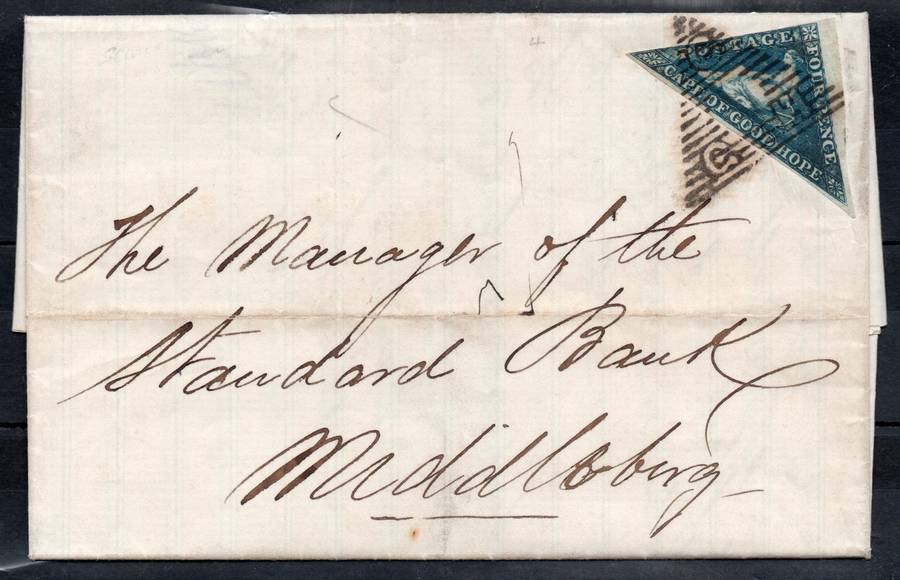 4
POSTAGE
FOUR PENCE
CAPE OF GOOD HOPE
The Manager of the
Standard Bank
Middlburg